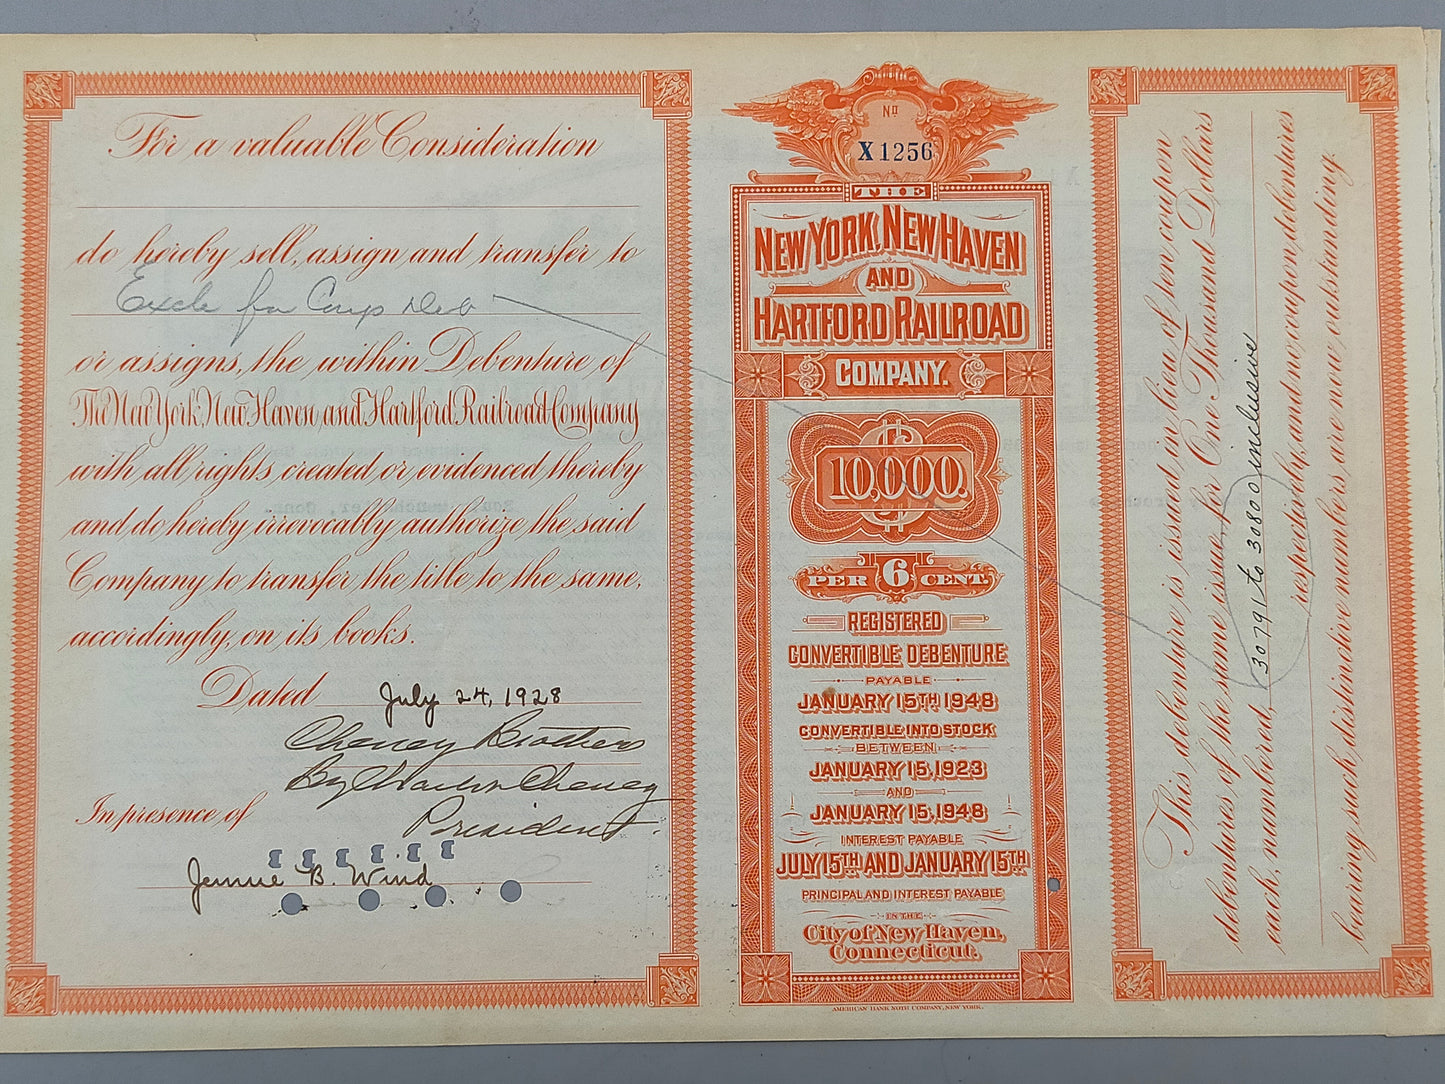 For a valuable Consideration
do hereby sell, assign and transfer to
Exch for Coup Deb
or assigns, the within Debenture of
The New York, New Haven and Hartford Railroad Company
with all rights created or evidenced thereby
and do hereby irrevocably authorize the said
Company to transfer the title to the same,
accordingly, on its books.
Dated July 24, 1928
Cheney Brothers
By Charles Cheney
President.
In presence of
Jennie B. Wind
No
X1256
THE
NEW YORK, NEW HAVEN
AND
HARTFORD RAILROAD
COMPANY.
$
10,000.
PER 6 CENT.
REGISTERED
CONVERTIBLE DEBENTURE
PAYABLE
JANUARY 15TH 1948
CONVERTIBLE INTO STOCK
BETWEEN
JANUARY 15, 1923
AND
JANUARY 15, 1948
INTEREST PAYABLE
JULY 15TH AND JANUARY 15TH
PRINCIPAL AND INTEREST PAYABLE
IN THE
City of New Haven,
Connecticut.
AMERICAN BANK NOTE COMPANY, NEW YORK.
This debenture is issued in lieu of ten coupon
debentures of the same issue, for One Thousand Dollars
each, numbered, 30791 to 30800 inclusive
respectively, and no coupon debentures
bearing such distinctive numbers are now outstanding.